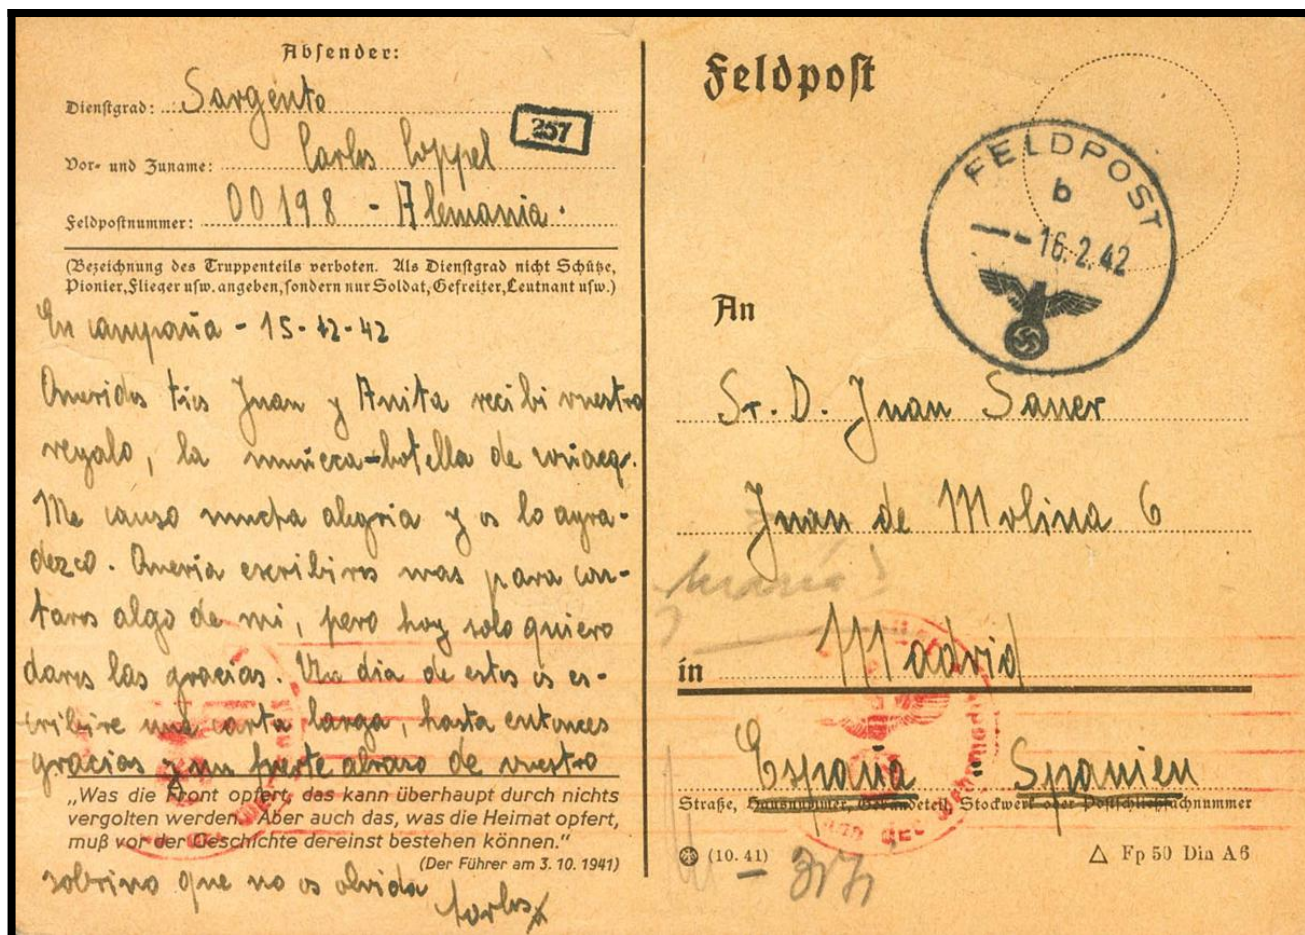 Absender:
Dienstgrad: Sargento
257
Vor- und Zuname: Carlos Coppel
Feldpostnummer: 00198 - Alemania.
(Bezeichnung des Truppenteils verboten. Als Dienstgrad nicht Schütze,
Pionier, Flieger usw. angeben, sondern nur Soldat, Gefreiter, Leutnant usw.)
En campaña - 15-12-42
Queridos tios Juan y Anita recibi vuestro
regalo, la muñeca-botella de
Me causo mucha alegria y os lo agra-
dezco. Queria escribiros mas para con-
taros algo de mi, pero hoy solo quiero
daros las gracias. Un dia de estos os es-
cribire una carta larga, hasta entonces
gracias y un fuerte abrazo de vuestro
„Was die Front opfert, das kann überhaupt durch nichts
vergolten werden. Aber auch das, was die Heimat opfert,
muß vor der Geschichte dereinst bestehen können.“
(Der Führer am 3. 10. 1941)
sobrino que no os olvida
Carlos
Feldpost
FELDPOST
b
16.2.42
An
Sr. D. Juan Sauer
Juan de Molina 6
in Madrid
España Spanien
Straße, Hausnummer, Gebäudeteil, Stockwerk oder Postschließfachnummer
(10. 41)
Fp 50 Din A6